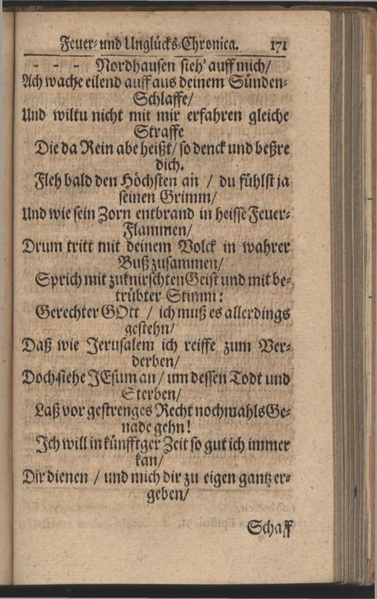 Feuer- und Unglücks-Chronica. 171
- - - Nordhausen sieh' auff mich/
Ach wache eilend auff aus deinem Sünden-
Schlaffe/
Und wiltu nicht mit mir erfahren gleiche
Straffe
Die da Rein abe heißt/ so denck und beßre
dich.
Fleh bald den Höchsten an / du fühlst ja
seinen Grimm/
Und wie sein Zorn entbrand in heisse Feuer-
Flammen/
Drum tritt mit deinem Volck in wahrer
Buß zusammen/
Sprich mit zuknirschten Geist und mit be-
trübter Stimm:
Gerechter GOtt / ich muß es allerdings
gestehn/
Daß wie Jerusalem ich reiffe zum Ver-
derben/
Doch siehe JEsum an / um dessen Todt und
Sterben/
Laß vor gestrenges Recht nochmahls Ge-
nade gehn!
Ich will in künfftger Zeit so gut ich immer
kan/
Dir dienen / und mich dir zu eigen gantz er-
geben/
Schaff